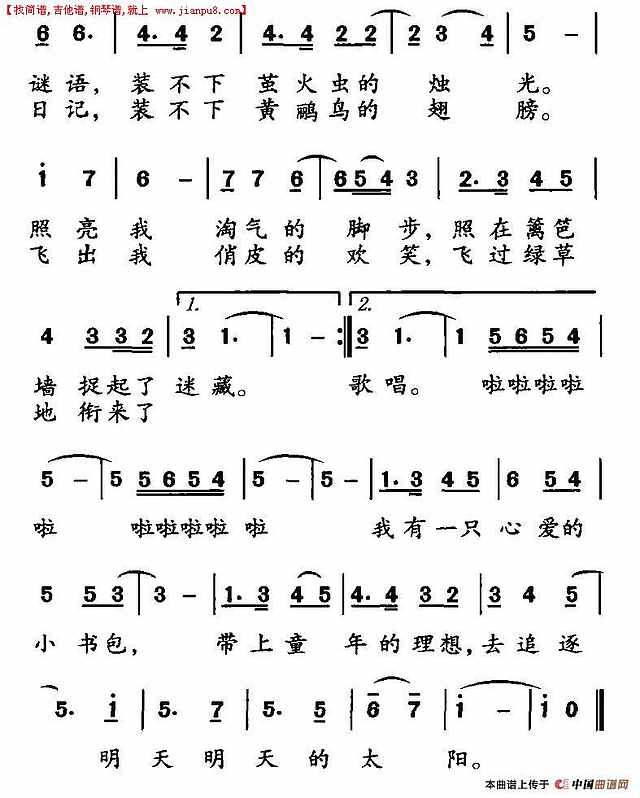 【找简谱,吉他谱,钢琴谱,就上 www.jianpu8.com】
6 6. | 4. 4 2 | 2. 4 2 2 | 2 3 4 | 5 - |
谜语，装不下萤火虫的烛光。
日记，装不下黄鹂鸟的翅膀。
1 7 | 6 - | 7 7 6 | 6 5 4 3 | 2. 3 4 5 |
照亮我淘气的脚步，照在篱笆
飞出我俏皮的欢笑，飞过绿草
1. 2.
4 3 3 2 | 3 1. | 1 - :| 3 1. | 1 5 6 5 4 |
墙捉起了迷藏。歌唱。啦啦啦啦
地衔来了
5 - | 5 5 6 5 4 | 5 - | 5 - | 1. 3 4 5 | 6 5 4 |
啦啦啦啦啦啦我有一只心爱的
5 5 3 | 3 - | 1. 3 4 5 | 4. 4 3 2 | 3 4 5 |
小书包，带上童年的理想，去追逐
5. 1 | 5. 7 | 5. 5 | 6 7 | 1 - | 1 0 ‖
明天明天的太阳。
本曲谱上传于 中国曲谱网